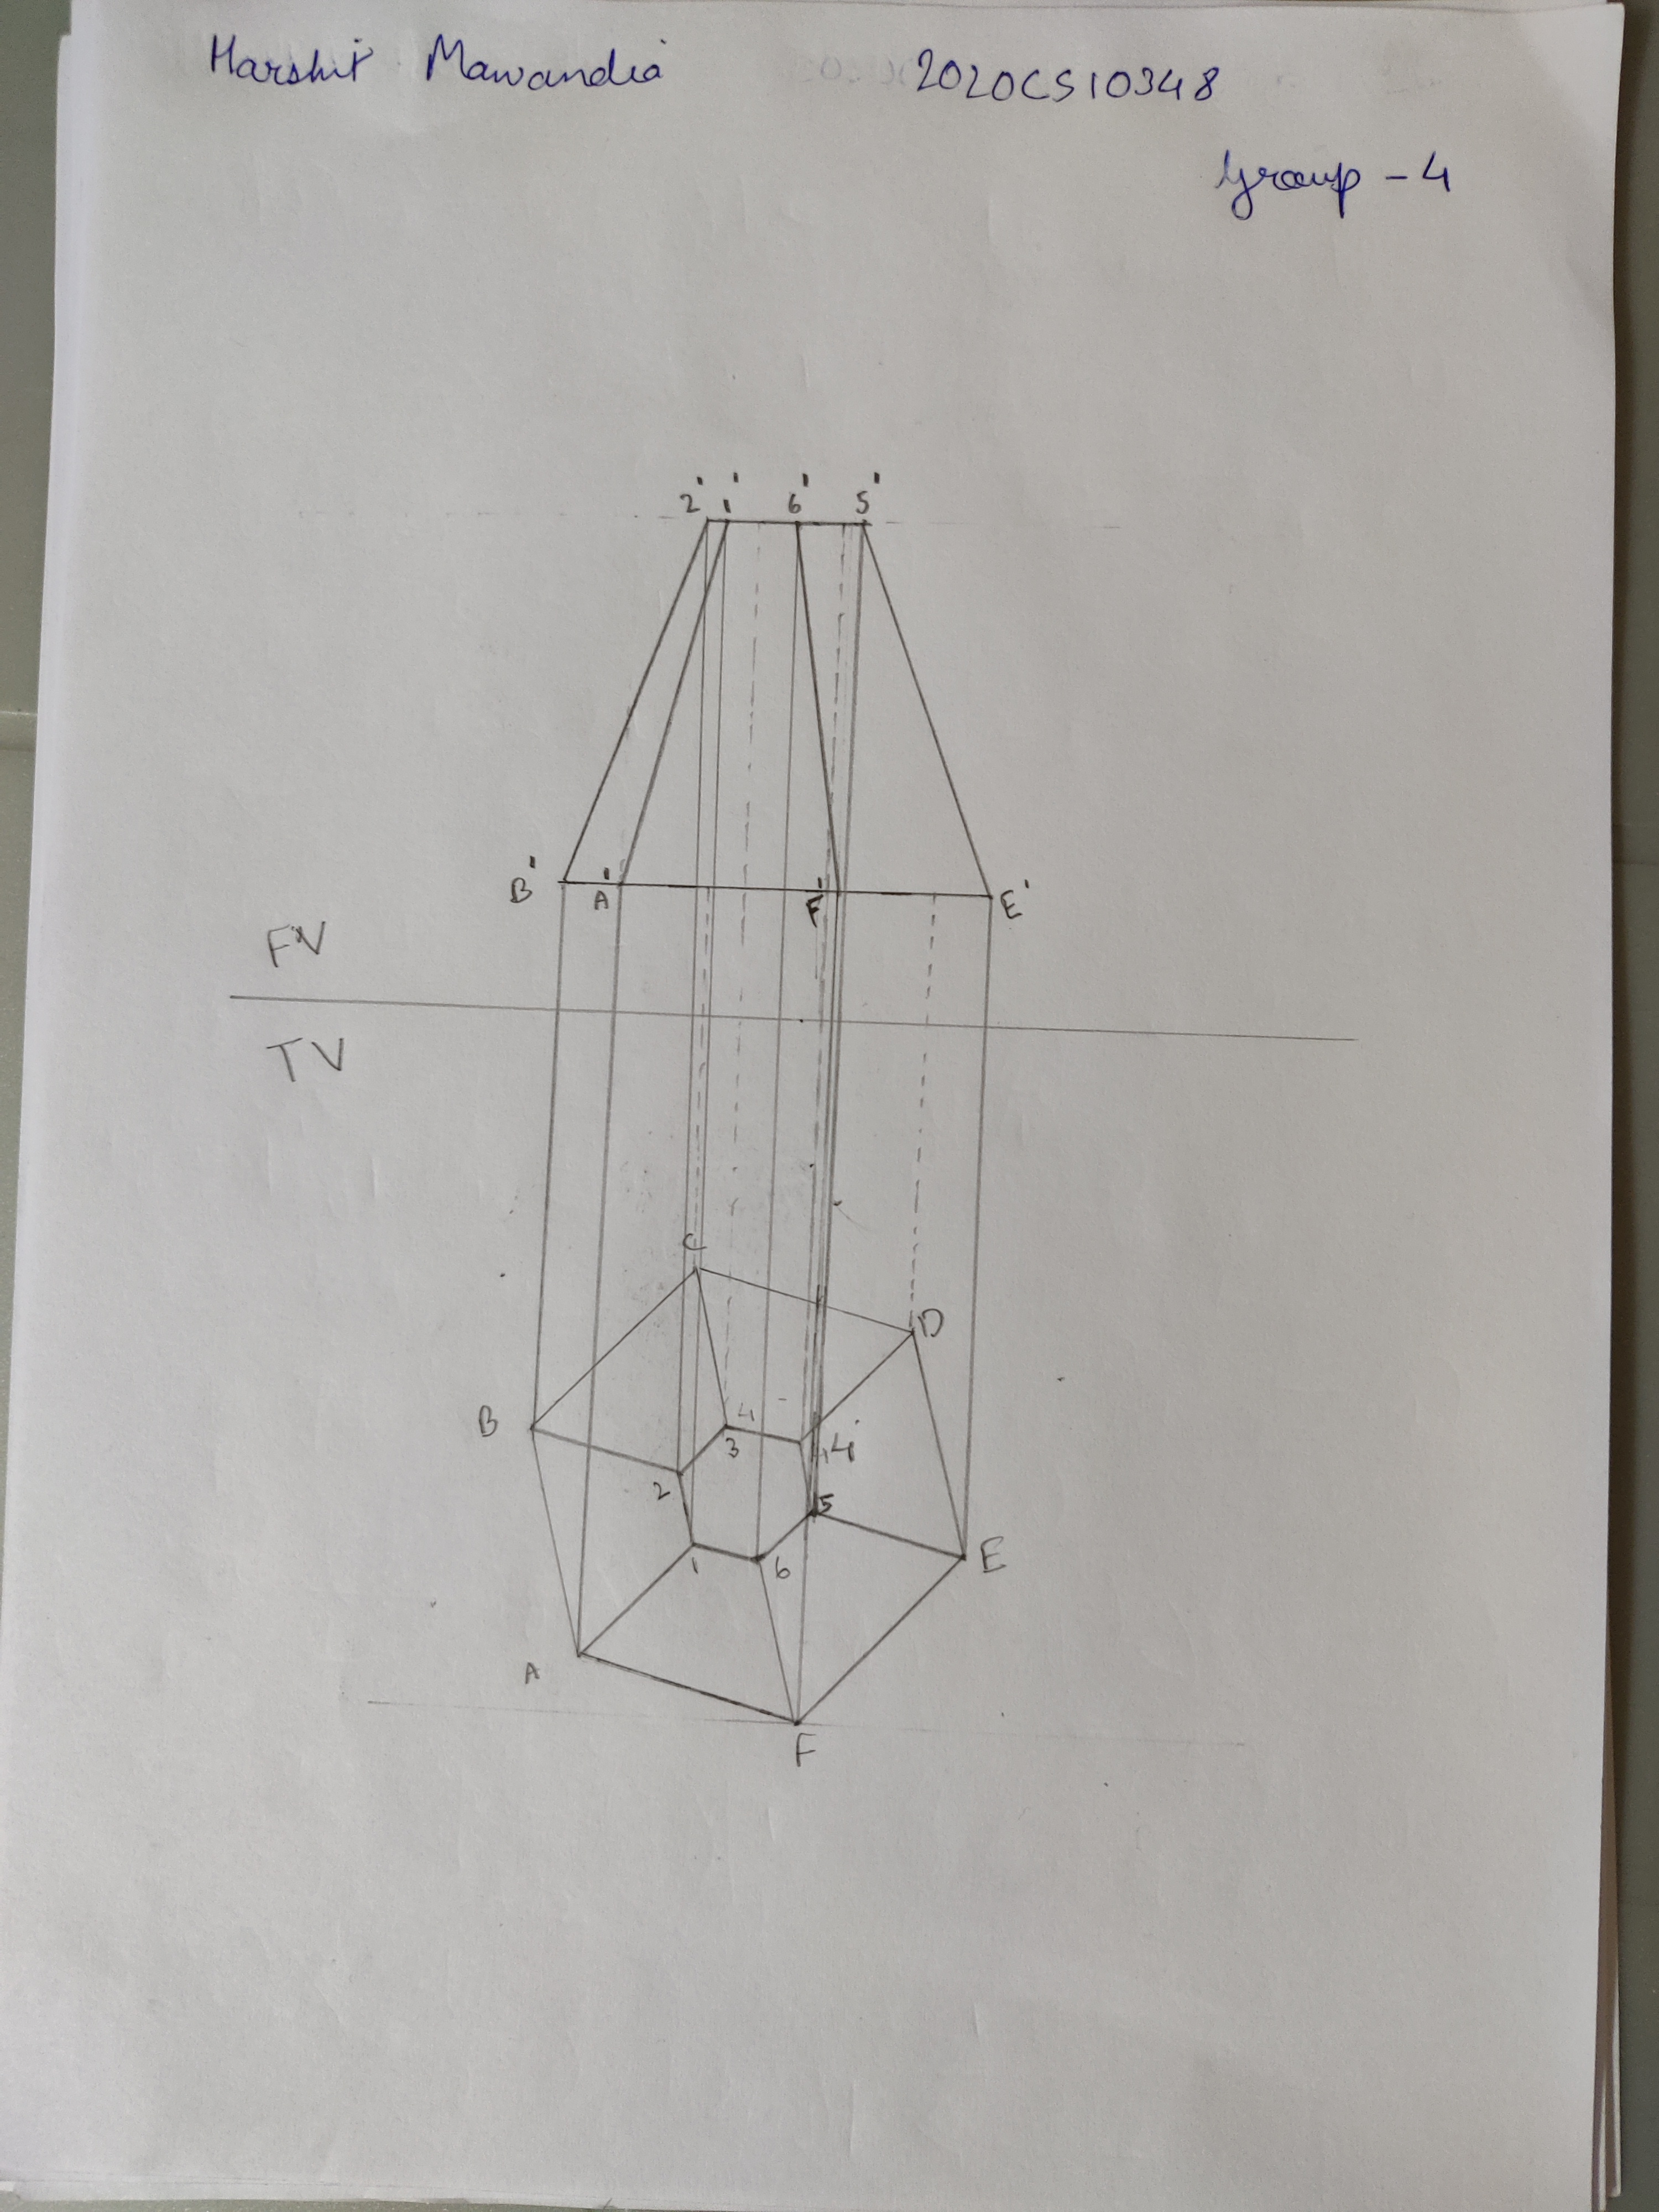 Harshit Mawandia 2020CS10348
Group - 4
2' 1' 6' 5'
B' A' F' E'
FV
TV
C
D
B 4
3 4
2 5
E
1 6
A
F